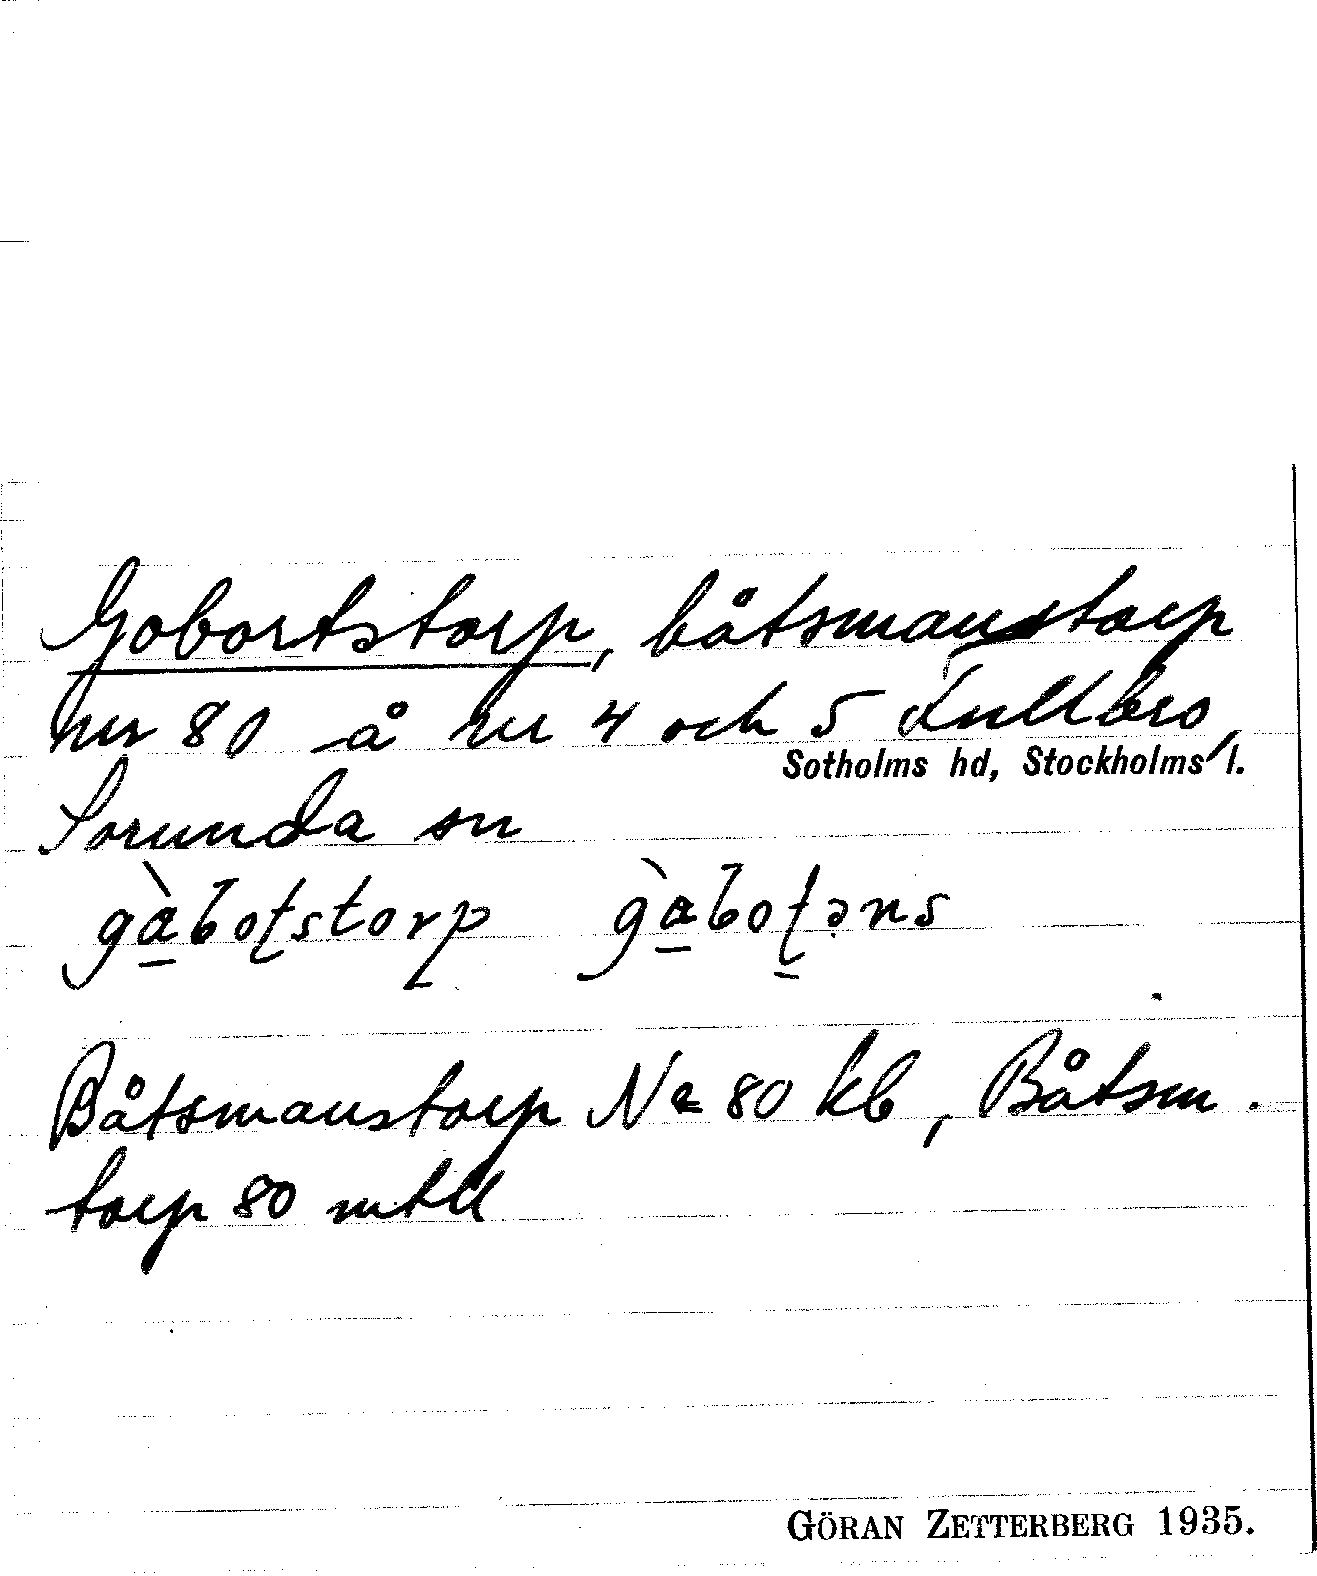 Gobortstorp, båtsmanstorp
nr 80 å nr 4 och 5 Fullbro,
Sotholms hd, Stockholms l.
Sorunda sn
gàboʈstorp gàboʈəns
Båtsmanstorp No 80 kb, Båtsm.
torp 80 mtll